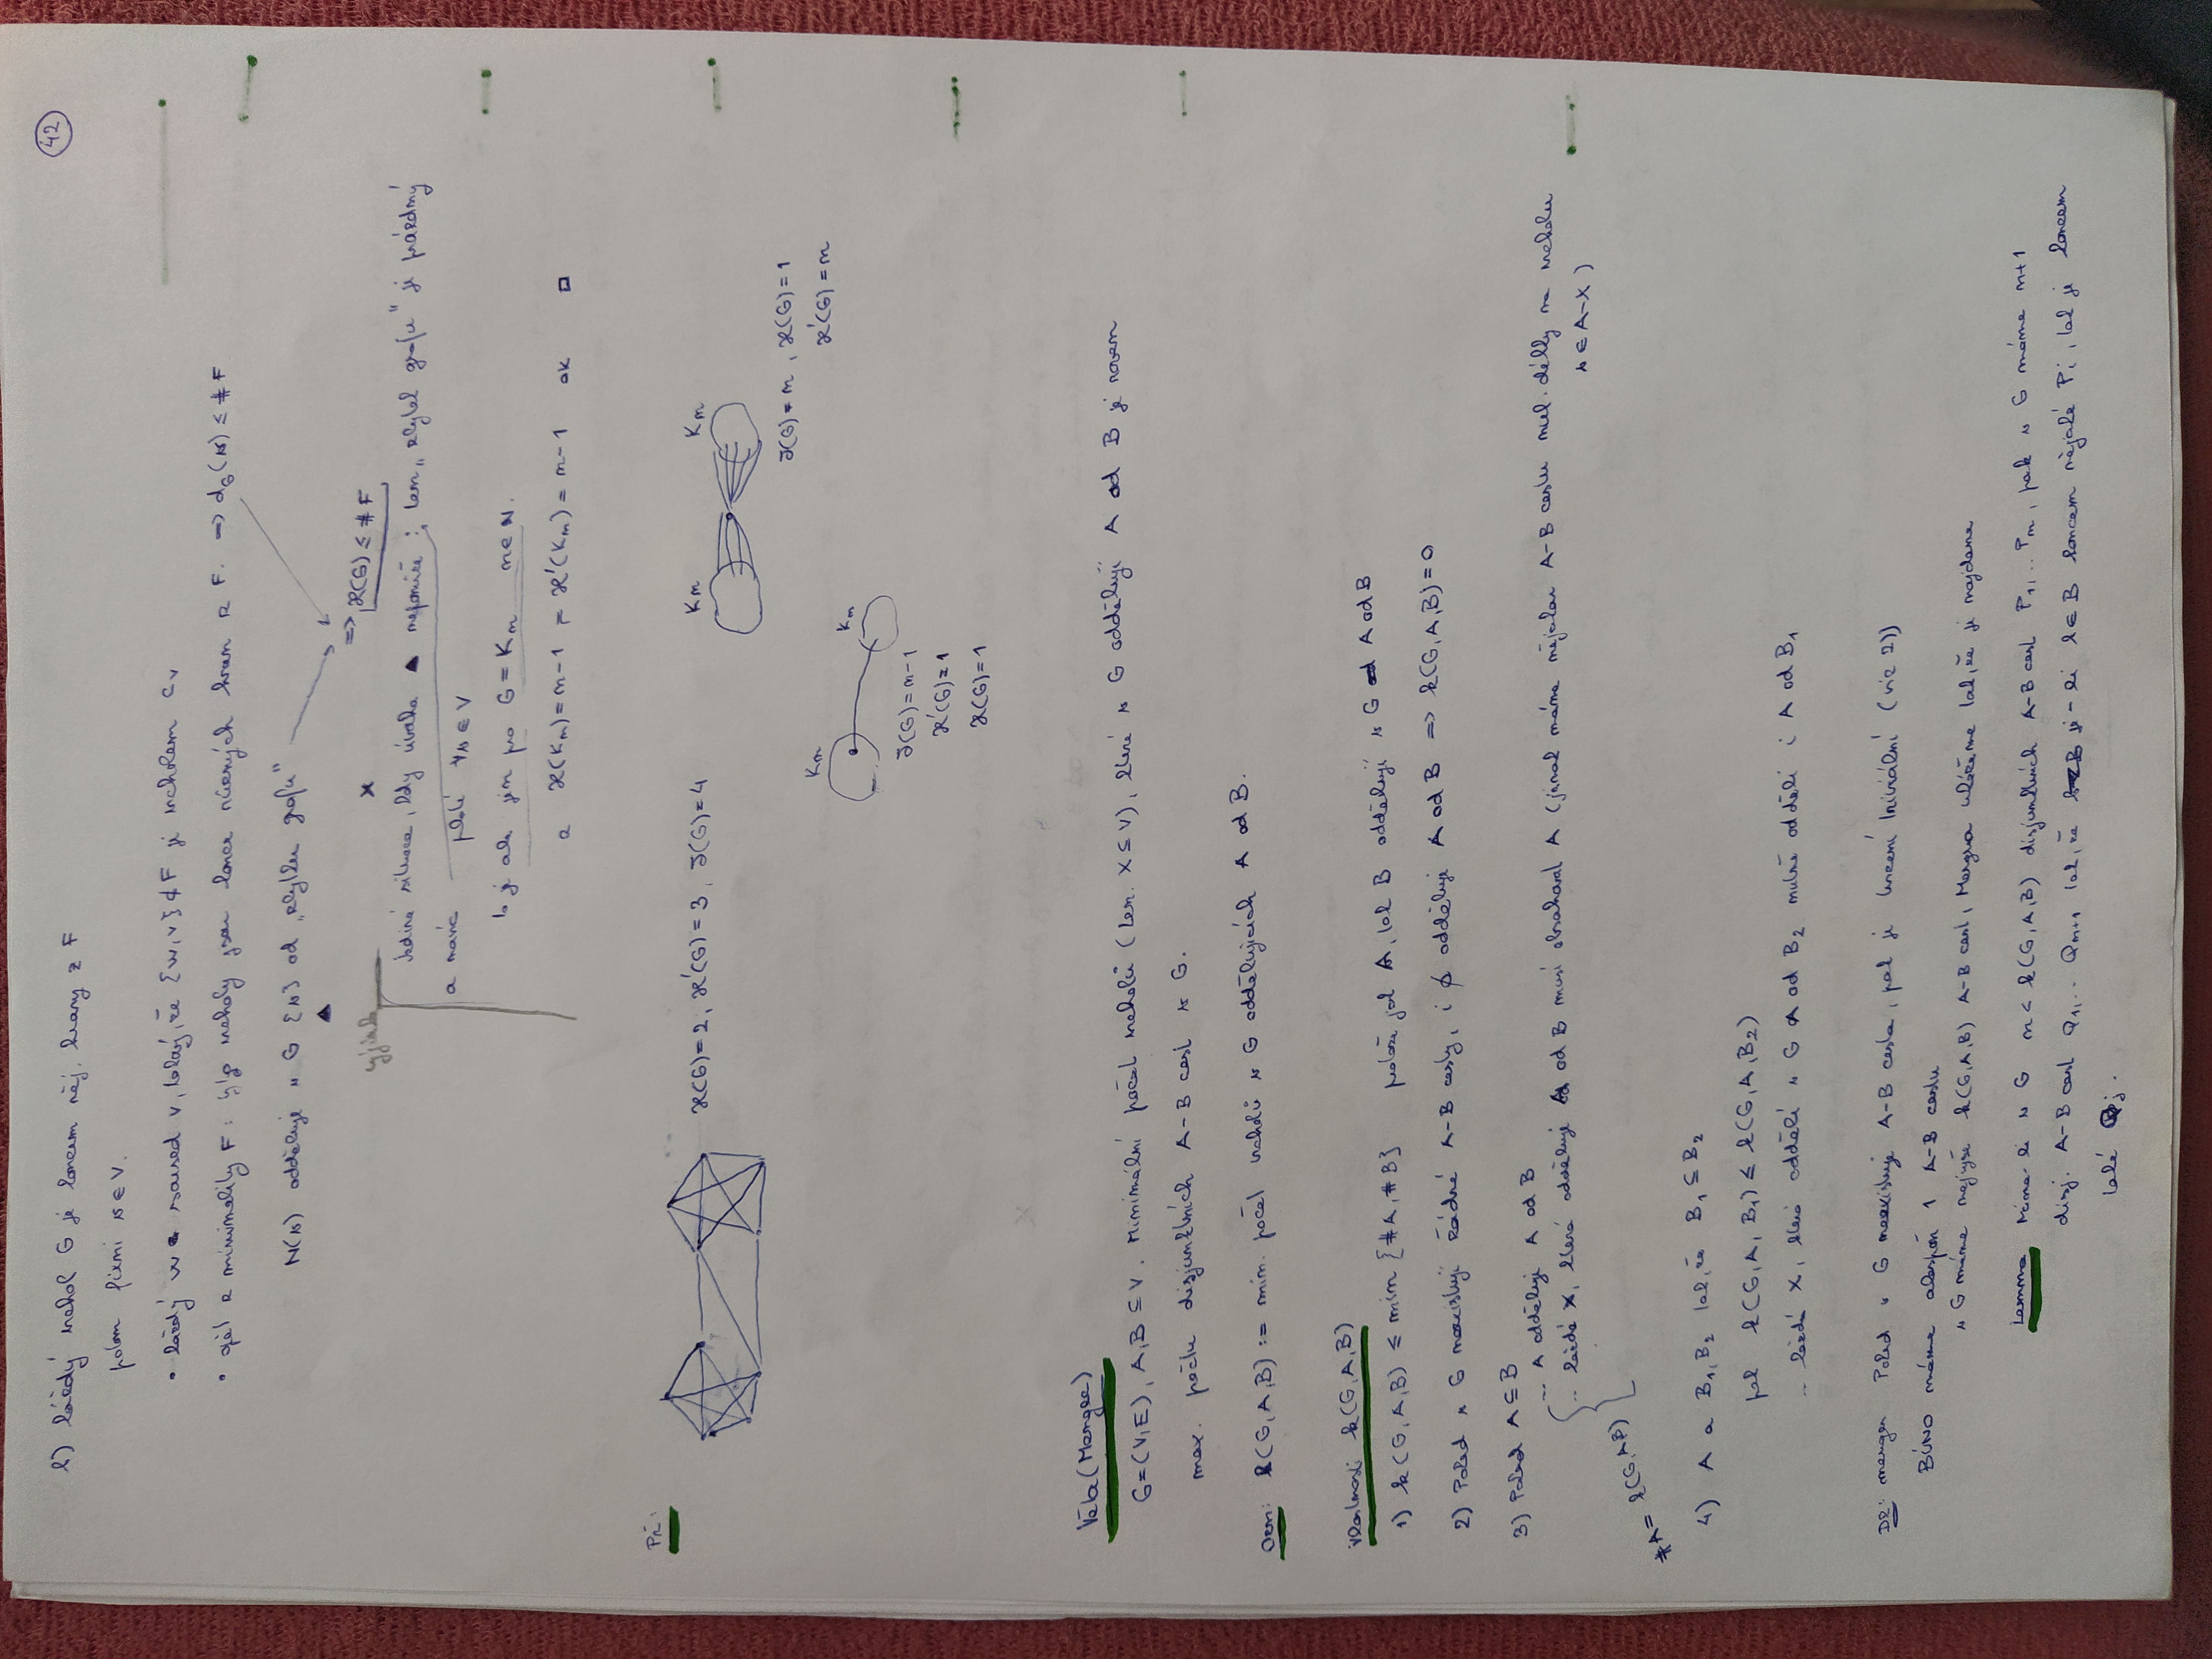 42
b) každý vrchol G je koncem něj. hrany z F
potom fixní v ∈ V.
• každý w soused v, takový, že {w,v} ∉ F je vrcholem Cv
• opět z minimality F: vrcholy jsou konce různých hran z F. => dG(v) ≤ #F
N(v) odděluje v G {v} od "zbytku grafu"
=> ϰ(G) ≤ #F
▲
výjimka
x
Jediná situace, kdy úvaha ▲ nefunguje: ten "zbytek grafu" je prázdný
a navíc platí ∀v ∈ V
to je ale jen pro G = Km m∈N.
a ϰ(Km) = m-1 = ϰ'(Km) = m-1 ok □
Př:
ϰ(G)=2, ϰ'(G)=3, δ(G)=4
Km
Km
δ(G)=m, ϰ(G)=1
ϰ'(G)=m
Km
Km
δ(G)=m-1
ϰ'(G)=1
ϰ(G)=1
Věta (Menger)
G=(V,E), A,B ⊆ V. Minimální počet vrcholů (ten. X ⊆ V), které v G oddělují A od B je roven
max. počtu disjunktních A-B cest v G.
Ozn: k(G,A,B) := min. počet vrcholů v G oddělujících A od B.
Vlastnosti k(G,A,B)
1) k(G,A,B) ≤ min {#A, #B} protože jak A, tak B oddělují v G A od B
2) Pokud v G neexistují žádné A-B cesty, i ∅ odděluje A od B => k(G,A,B)=0
3) Pokud A ⊆ B
.. A odděluje A od B
.. každé X, které odděluje A od B musí obsahovat A (jinak máme nějakou A-B cestu nul. délky na vrcholu
v ∈ A-X)
#A = k(G,A,B)
4) A a B1, B2 tak, že B1 ⊆ B2
pak k(G,A,B1) ≤ k(G,A,B2)
.. každá X, která oddělí v G A od B2 nutně oddělí i A od B1
Dk: menger Pokud v G neexistuje A-B cesta, pak je tvrzení triviální (viz 2))
BÚNO máme alespoň 1 A-B cestu
v G máme nejvýše k(G,A,B) A-B cest, Mengra ukážeme tak, že je najdeme
Lemma Máme-li v G m < k(G,A,B) disjunktních A-B cest P1,.. Pm, pak v G máme m+1
disj. A-B cest Q1,.. Qm+1 tak, že je-li b ∈ B koncem nějaké Pi, tak je koncem
také Qj.